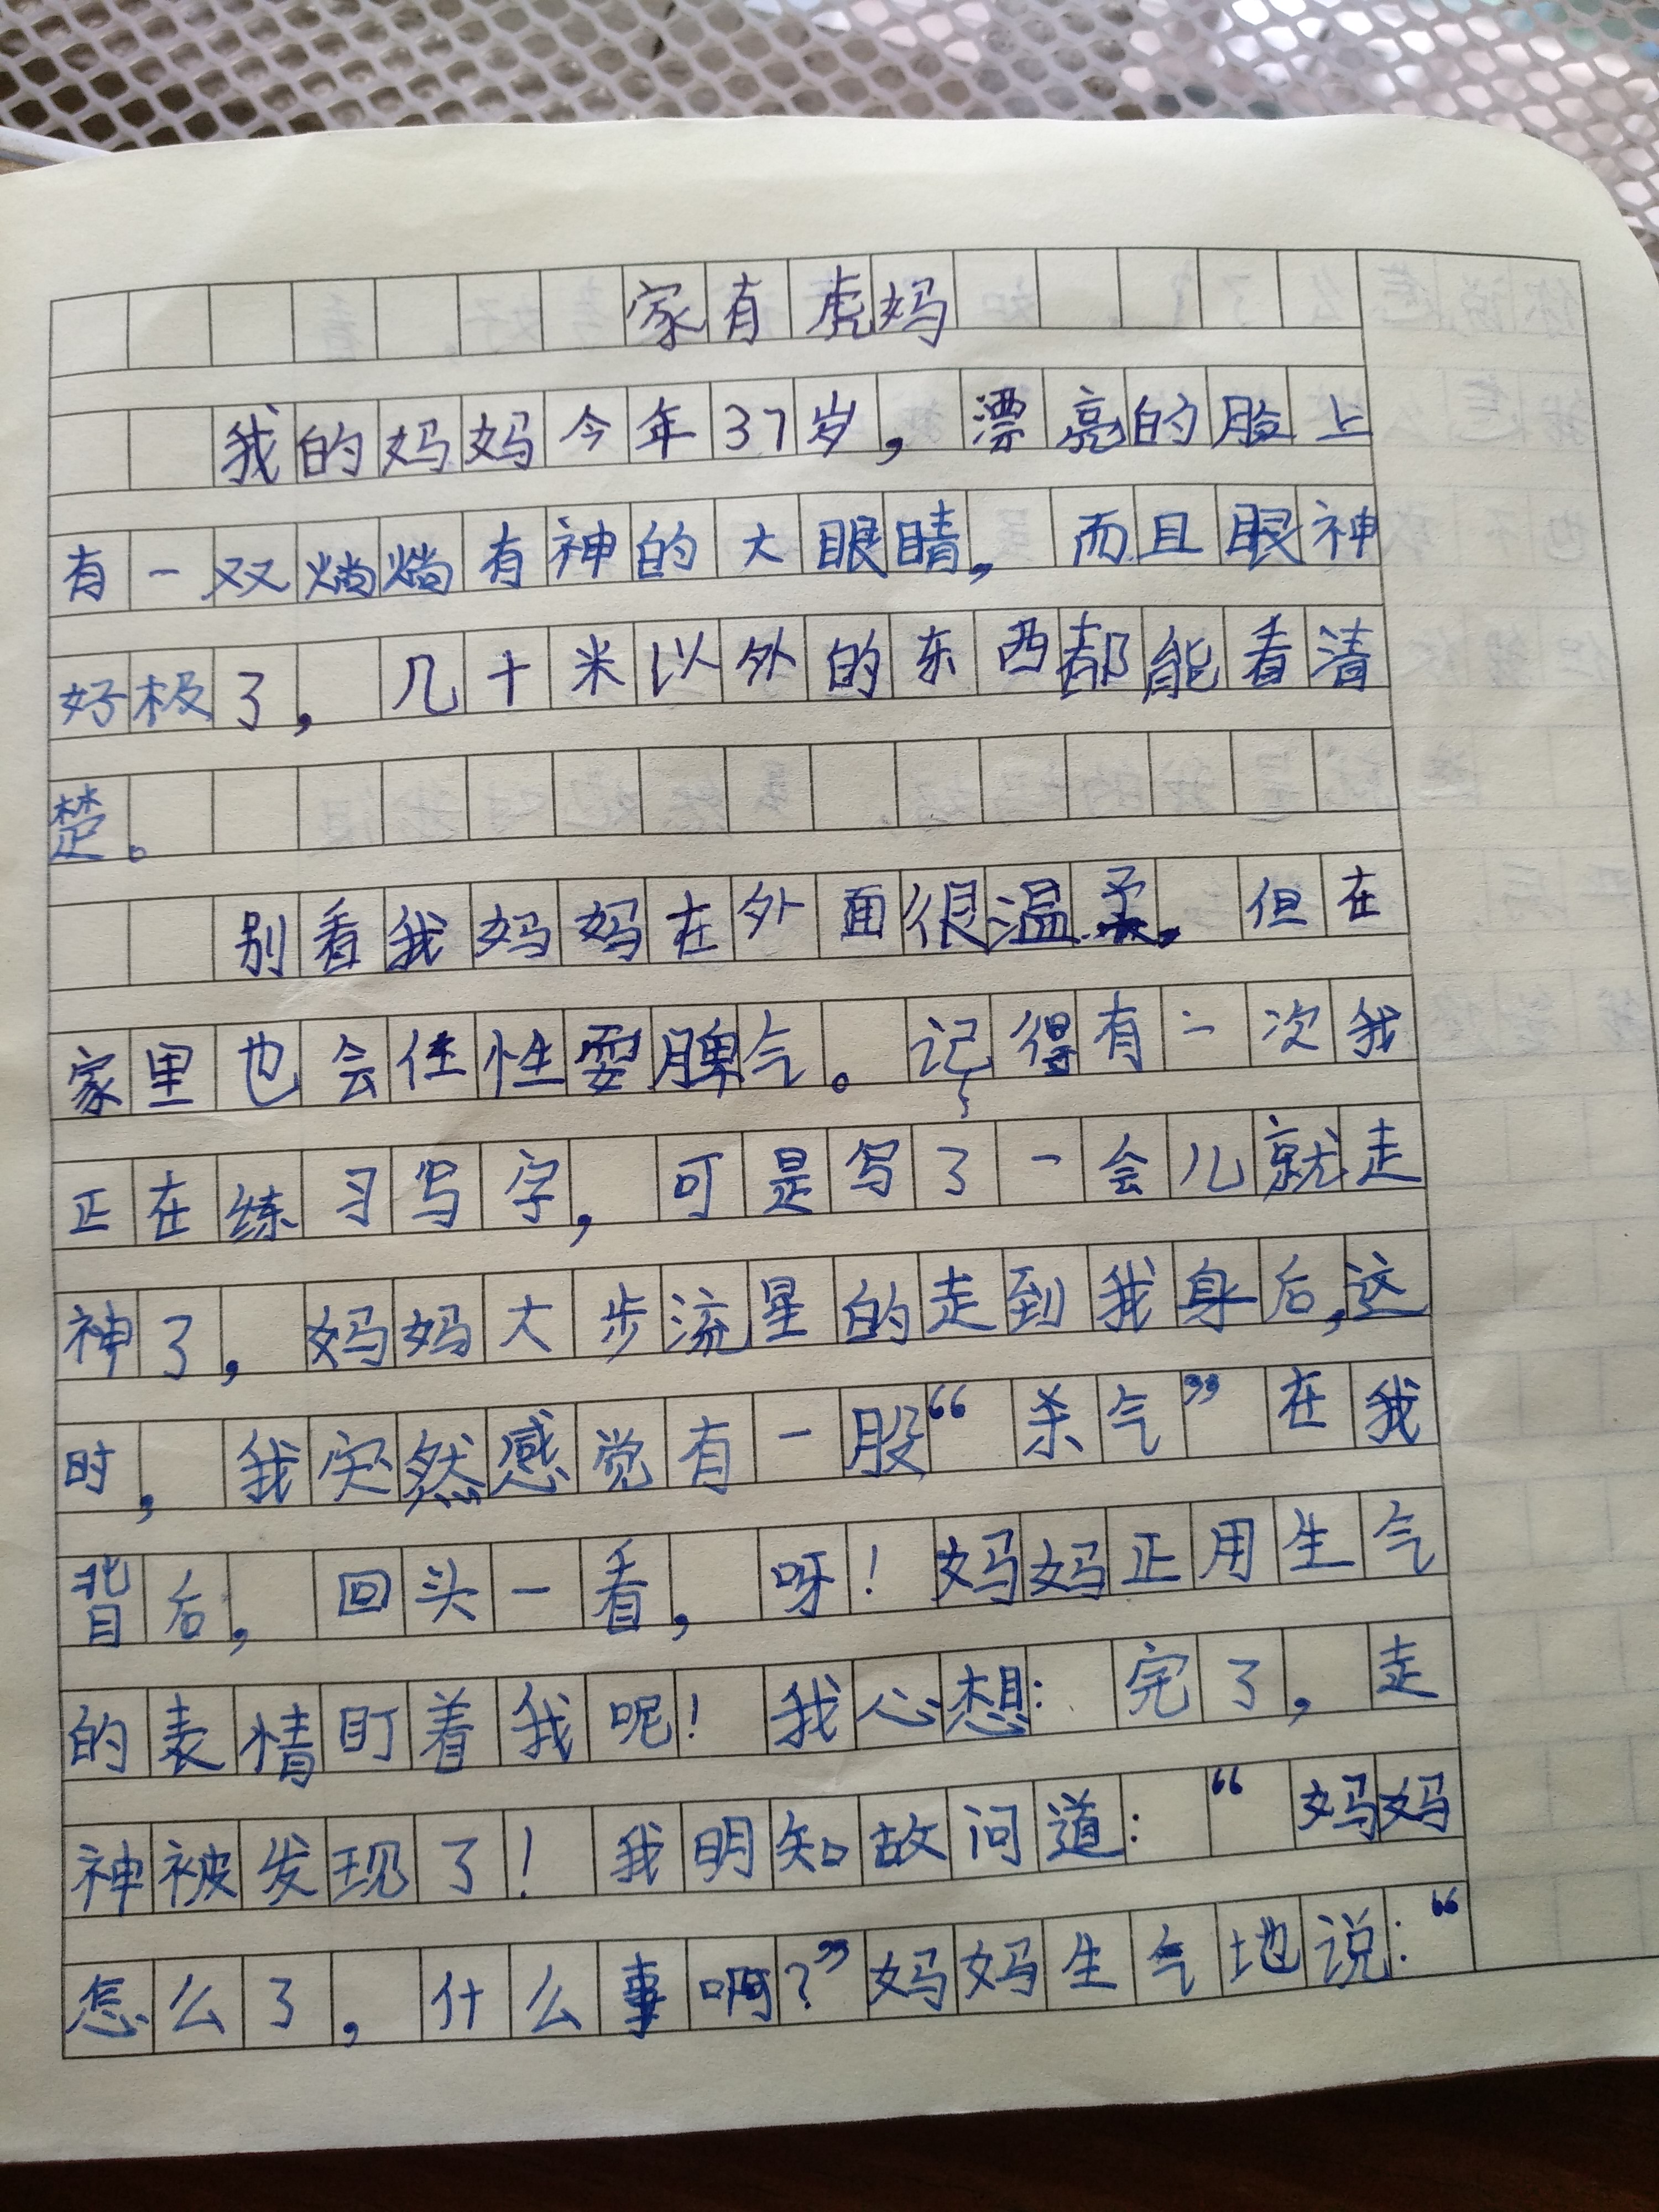 家有虎妈
我的妈妈今年37岁，漂亮的脸上
有一双熵熵有神的大眼睛，而且眼神
好极了，几十米以外的东西都能看清
楚。
别看我妈妈在外面很温柔，但在
家里也会任性耍脾气。记得有一次我
正在练习写字，可是写了一会儿就走
神了，妈妈大步流星的走到我身后，这
时，我突然感觉有一股“杀气”在我
背后，回头一看，呀！妈妈正用生气
的表情盯着我呢！我心想：完了，走
神被发现了！我明知故问道：“妈妈
怎么了，什么事啊？”妈妈生气地说：“